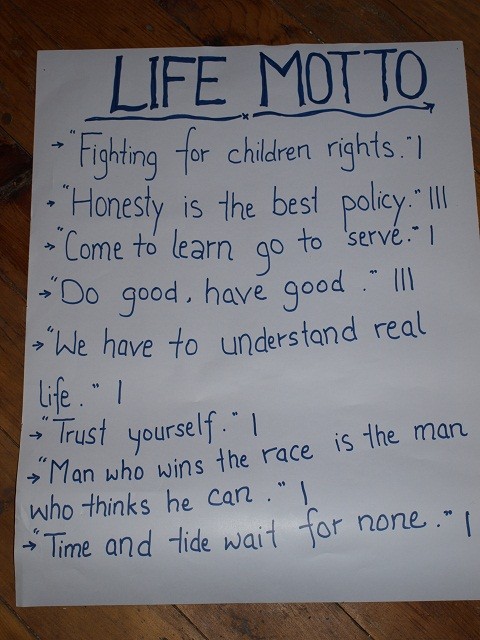 LIFE MOTTO
x
→ "Fighting for children rights." |
→ "Honesty is the best policy." |||
→ "Come to learn go to serve." |
→ "Do good, have good ." |||
→ "We have to understand real
life." |
→ "Trust yourself." |
→ "Man who wins the race is the man
who thinks he can ." |
→ "Time and tide wait for none." |